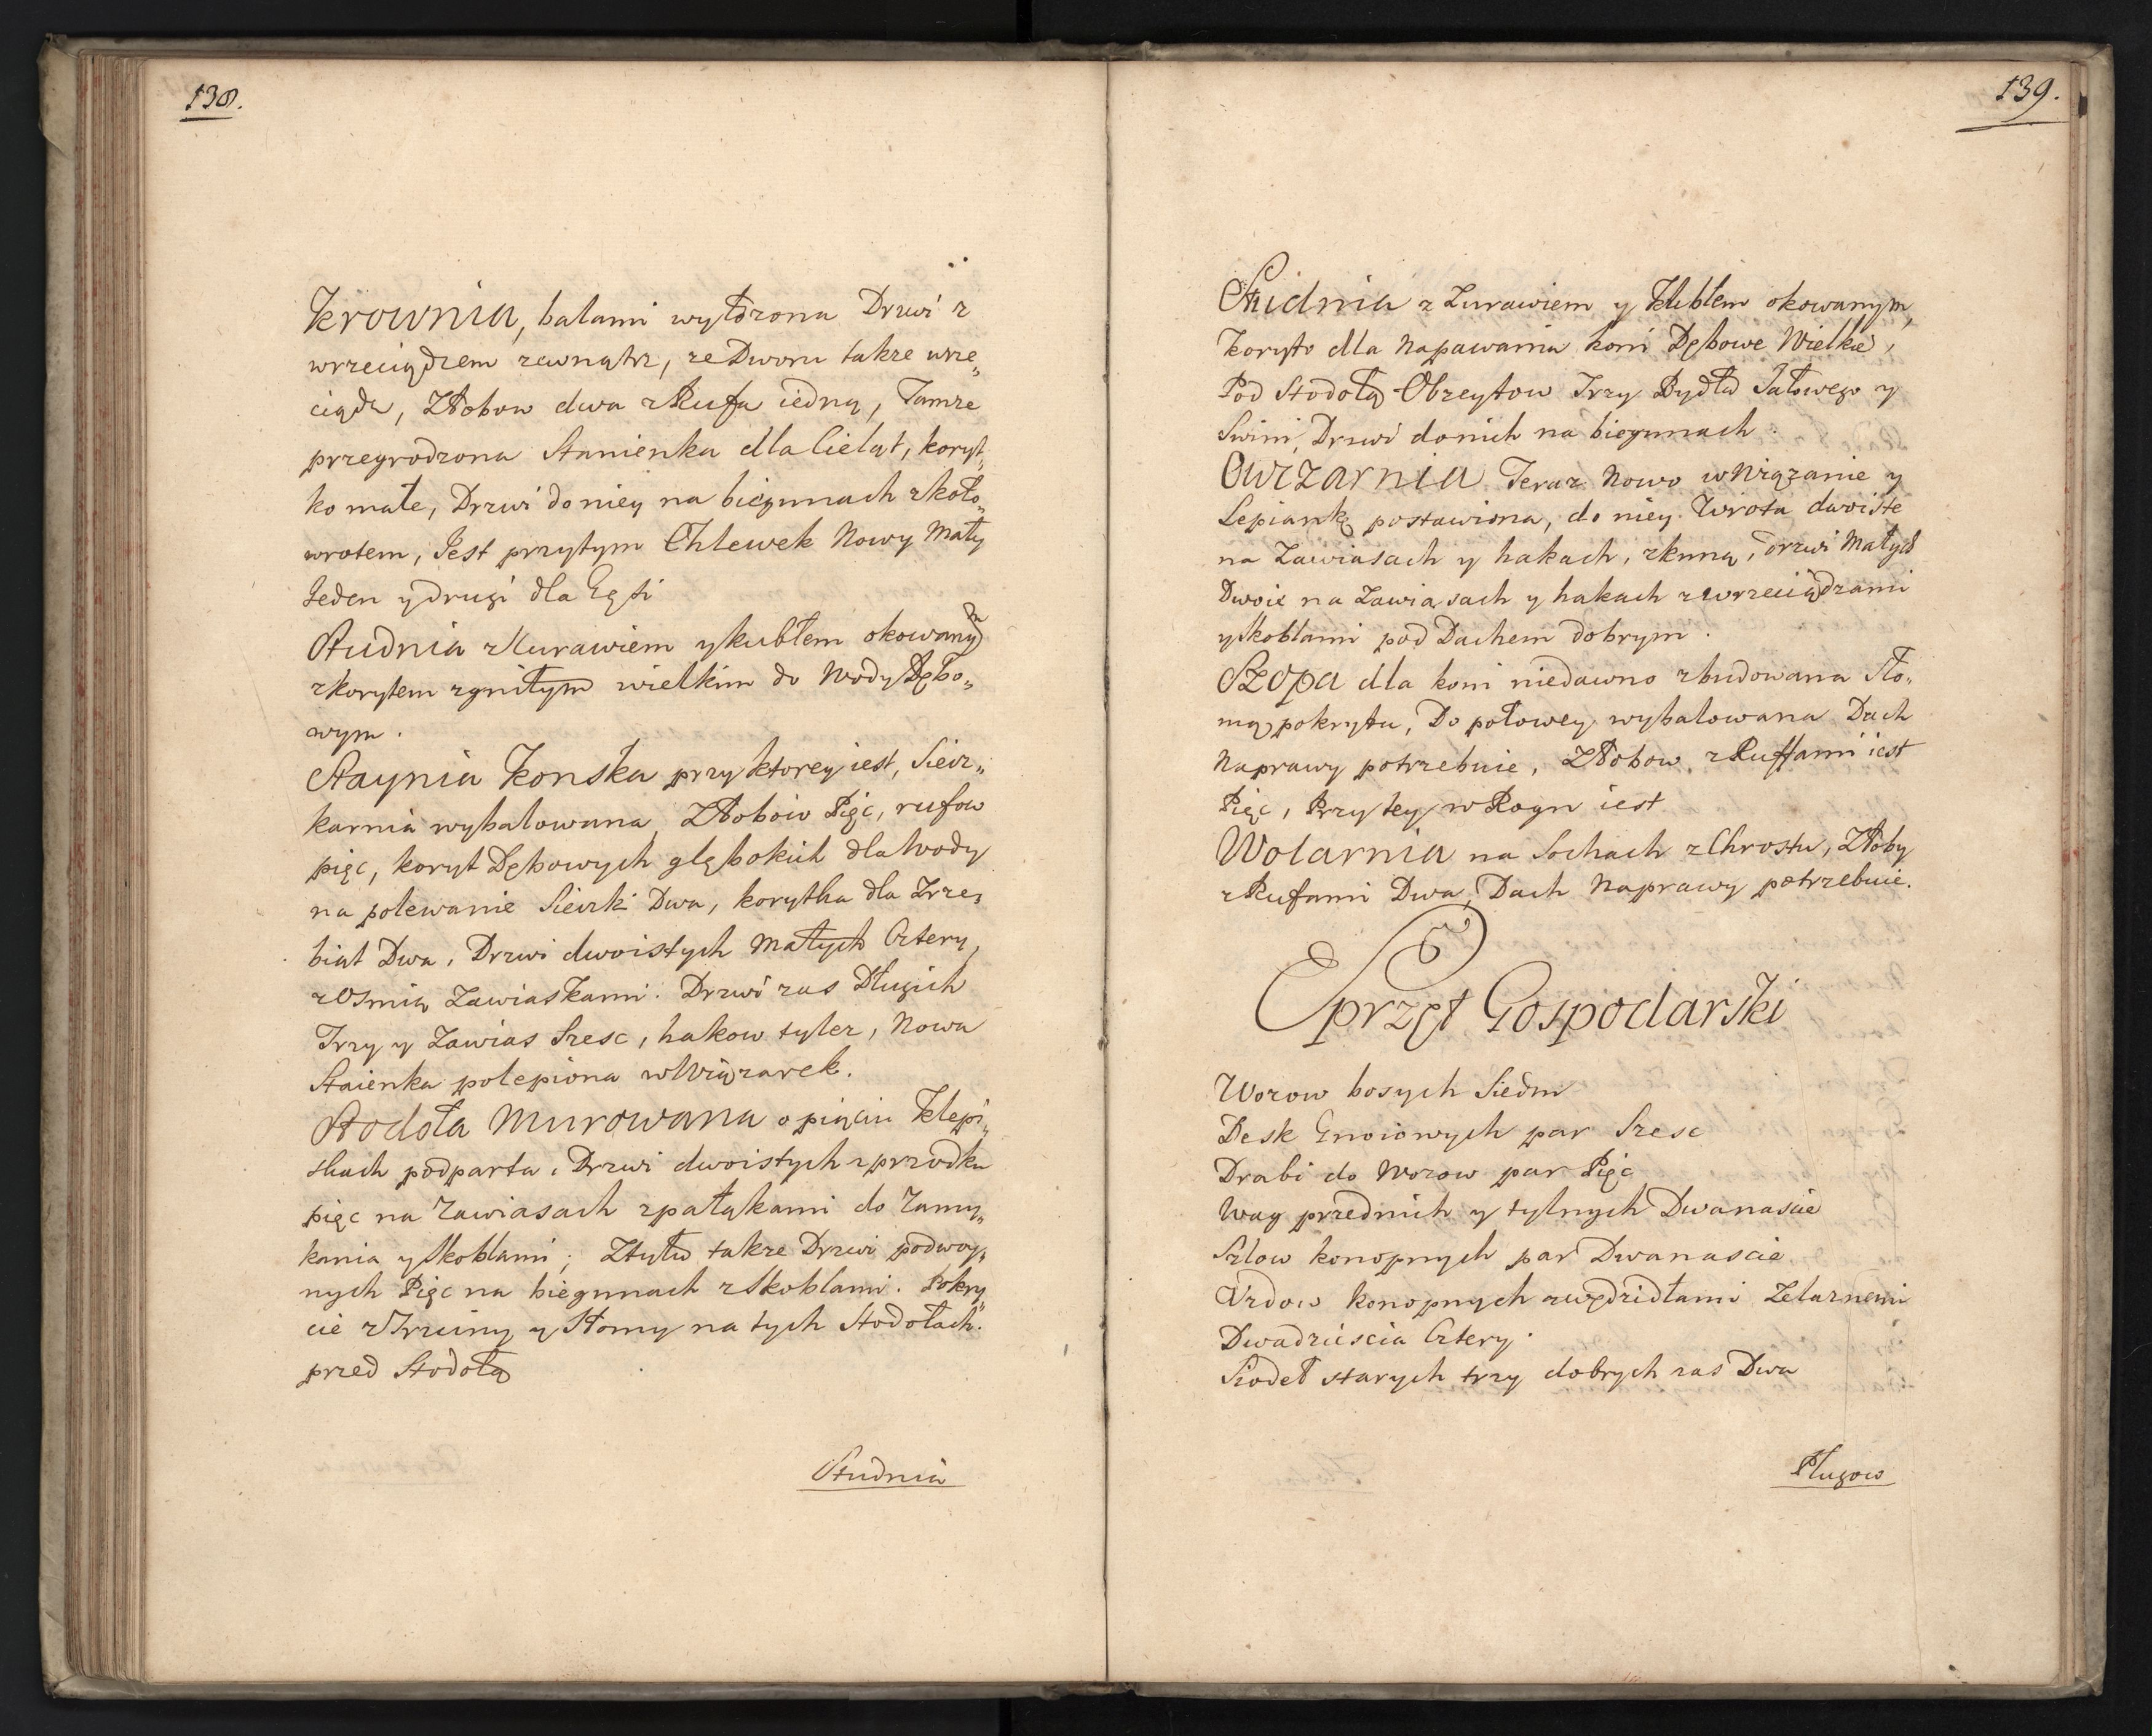 138.
Krownia, balami wyłozona Drzwi z
wrzeciądzem zewnątrz, ze Dworu takze wrze„
ciądz, Złobow dwa z Rufą iedną, Tamze
przegrodzona Stanienka dla Cieląt, koryt„
ko małe, Drzwi do niey na biegunach z koło„
wrotem, Jest przytym Chlewek Nowy Mały
Jeden y drugi dla Gęsi
Studnia z Zurawiem y kubłem okowanym
z korytem zgniłym wielkim do Wody Dębo„
wym.
Staynia Konska przy ktorey iest, Siecz„
karnia wybalowana, Złobow Pięc, rufow
pięc, koryt Dębowych głębokich dla Wody
na polewanie Sieczki Dwa, korytka dla Zrze„
biąt Dwa, Drzwi dwoistych Małych Cztery,
z Osmią Zawiaskami. Drzwi zas Długich
Trzy y Zawias Szesc, hakow tylez, Nowa
Staienka polepiona w Wiązarek.
Stodoła Murowana o pięciu Klepi„
skach podparta, Drzwi dwoistych z przodku
pięc na Zawiasach z pałąkami do Zamy„
kania y Skoblami; Ztyłu takze Drzwi podwoy„
nych Pięc na biegunach z Skoblami. Pokry„
cie z Trzciny y Słomy na tych Stodołach.
przed Stodołą
Studnia
139.
Studnia z Zurawiem y Kubłem okowanym,
Koryto dla Napawania koni Dębowe Wielkie,
Pod Stodołą Obzeytow Trzy Bydła Jałowego y
Swini, Drzwi do nich na biegunach.
Owczarnia Teraz Nowo w Wiązanie y
Lepiankę postawiona, do niey Wrota dwoiste
na Zawiasach y hakach, z kuną, drzwi Małych
Dwoie na Zawiasach y hakach z wrzeciądzami
y Skoblami pod Dachem dobrym.
Szopa dla koni niedawno zbudowana Sło„
mą pokryta, Do połowey wybalowana Dach
Naprawy potrzebuie, Złobow z Ruffami iest
Pięc, Przy tey w Rogu iest
Wolarnia na Sochach z Chrostu, Złoby
z Rufami Dwa, Dach Naprawy potrzebuie.
Sprzęt Gospodarski
Wozow bosych Siedm
Desk Gnoiowych par Szesc
Drabi do Wozow par Pięc
Wag przednich y tylnych Dwanascie
Szlow konopnych par Dwanascie
Uzdow konopnych z wędzidłami Zelaznemi
Dwadziescia Cztery.
Siodeł starych trzy dobrych zas Dwa
Pługow